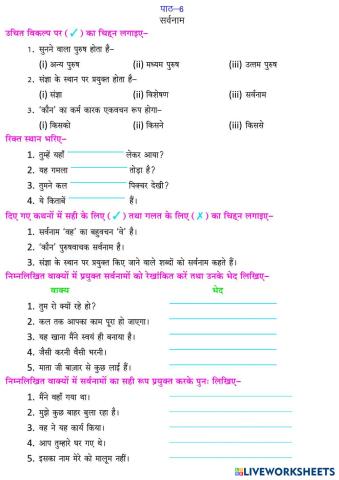 पाठ–6
सर्वनाम
उचित विकल्प पर ( ✓ ) का चिह्न लगाइए–
1. सुनने वाला पुरुष होता है–
(i) अन्य पुरुष (ii) मध्यम पुरुष (iii) उत्तम पुरुष
2. संज्ञा के स्थान पर प्रयुक्त होता है–
(i) संज्ञा (ii) विशेषण (iii) सर्वनाम
3. ‘कौन’ का कर्म कारक एकवचन रूप होगा–
(i) किसको (ii) किसने (iii) किससे
रिक्त स्थान भरिए–
1. तुम्हें यहाँ लेकर आया?
2. यह गमला तोड़ा है?
3. तुमने कल पिक्चर देखी?
4. ये किताबें हैं।
दिए गए कथनों में सही के लिए ( ✓ ) तथा गलत के लिए ( ✗ ) का चिह्न लगाइए–
1. सर्वनाम ‘वह’ का बहुवचन ‘वे’ है।
2. ‘कौन’ पुरुषवाचक सर्वनाम है।
3. संज्ञा के स्थान पर प्रयुक्त किए जाने वाले शब्दों को सर्वनाम कहते हैं।
निम्नलिखित वाक्यों में प्रयुक्त सर्वनामों को रेखांकित करें तथा उनके भेद लिखिए–
वाक्य भेद
1. तुम रो क्यों रहे हो?
2. कल तक आपका काम पूरा हो जाएगा।
3. यह खाना मैंने स्वयं ही बनाया है।
4. जैसी करनी वैसी भरनी।
5. माता जी बाज़ार से कुछ लाई हैं।
निम्नलिखित वाक्यों में सर्वनामों का सही रूप प्रयुक्त करके पुनः लिखिए–
1. मैंने वहाँ गया था।
2. मुझे कुछ बाहर बुला रहा है।
3. वह ने यह कार्य किया।
4. आप तुम्हारे घर गए थे।
5. इसका नाम मेरे को मालूम नहीं।
LIVEWORKSHEETS